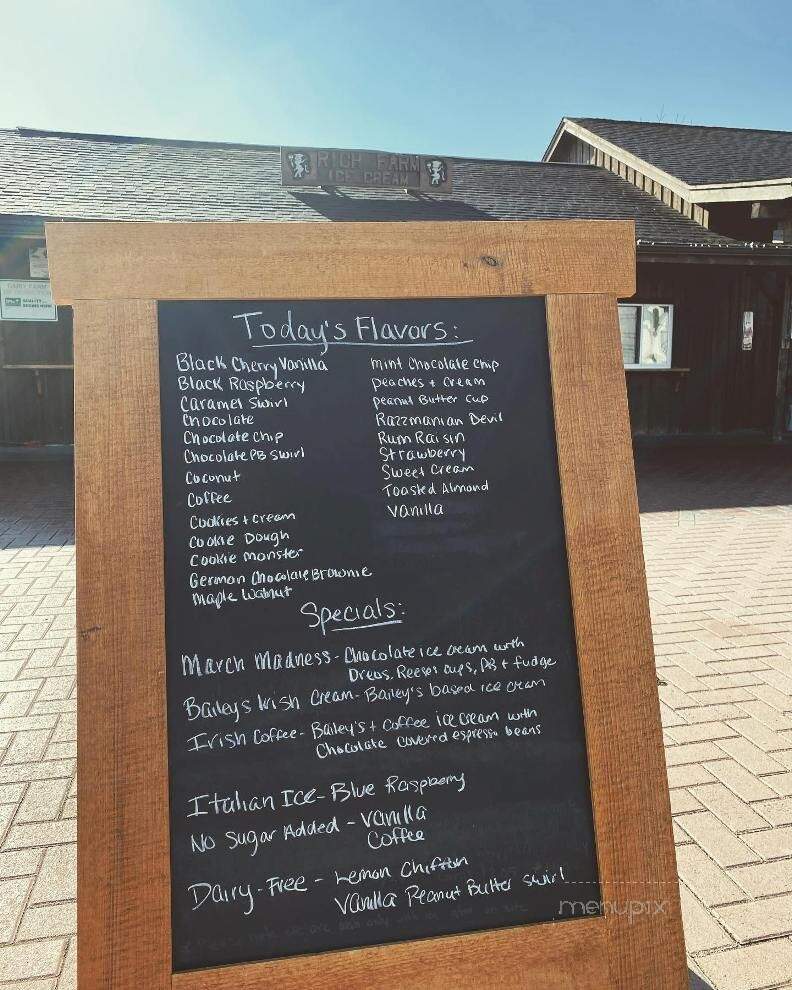 RICH FARM
ICE CREAM
DAIRY FARM
Today's Flavors:
Black Cherry Vanilla
Black Raspberry
Caramel Swirl
Chocolate
Chocolate Chip
Chocolate PB Swirl
Coconut
Coffee
Cookies + Cream
Cookie Dough
Cookie Monster
German Chocolate Brownie
Maple Walnut
Mint Chocolate Chip
Peaches + Cream
Peanut Butter Cup
Razzmanian Devil
Rum Raisin
Strawberry
Sweet Cream
Toasted Almond
Vanilla
Specials:
March Madness - Chocolate ice cream with
Oreos, Reeses cups, PB + fudge
Baileys Irish Cream - Bailey's based ice cream
Irish Coffee - Bailey's + Coffee ice cream with
Chocolate covered espresso beans
Italian Ice - Blue Raspberry
No Sugar Added - Vanilla
Coffee
Dairy-Free - Lemon Chiffon
Vanilla Peanut Butter swirl
menupix